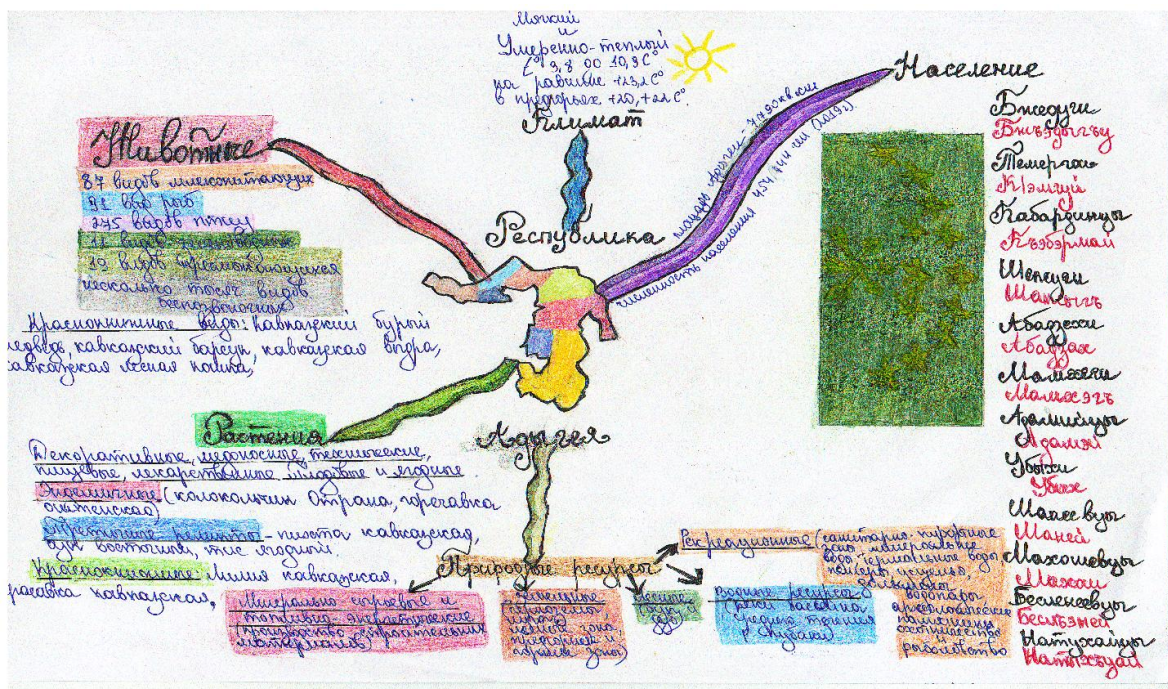 Мягкий
и
Умеренно-теплый
на равнине +23,2 С°
в предгорьях +20, +22 С°
Климат
Население
площадь Адыгеи
численность населения 454.744 чел (2019г.)
Животные
87 видов млекопитающих
91 вид рыб
275 видов птиц
11 видов земноводных
19 видов пресмыкающихся
несколько тысяч видов
беспозвоночных
Краснокнижные виды: Кавказский бурый
медведь, кавказский барсук, кавказская выдра,
кавказская лесная кошка,
Республика
Адыгея
Растения
Декоративные, медоносные, технические,
пищевые, лекарственные плодовые и ягодные
Эндемичные (колокольчик Отрана, горечавка
Третичные реликты - пихта кавказская,
бук восточный, тис ягодный.
Краснокнижные: Лилия кавказская,
красавка кавказская,
Природные ресурсы
Минерально сырьевые и
топливно энергетические
(производство строительных
материалов)
Земельные
предгорные и
горные зоны)
Лесные
Водные ресурсы
(реки бассейна
среднего течения
р. Кубани)
Рекреационные (санитарно-курортные
зоны, минеральные
воды, термальные воды
водопады
археологические
памятники
рыболовство
Бжедуги
Бжъэдыгъу
Темергои
КӀэмгуй
Кабардинцы
Къэбэртай
Шапсуги
Шапсыгъ
Абадзехи
Абадзэх
Мамхеги
Мамхэгъ
Адамийцы
Адамэй
Убыхи
Убых
Махошевцы
Махош
Бесленеевцы
Беслъэней
Натухайцы
Натыхъуай